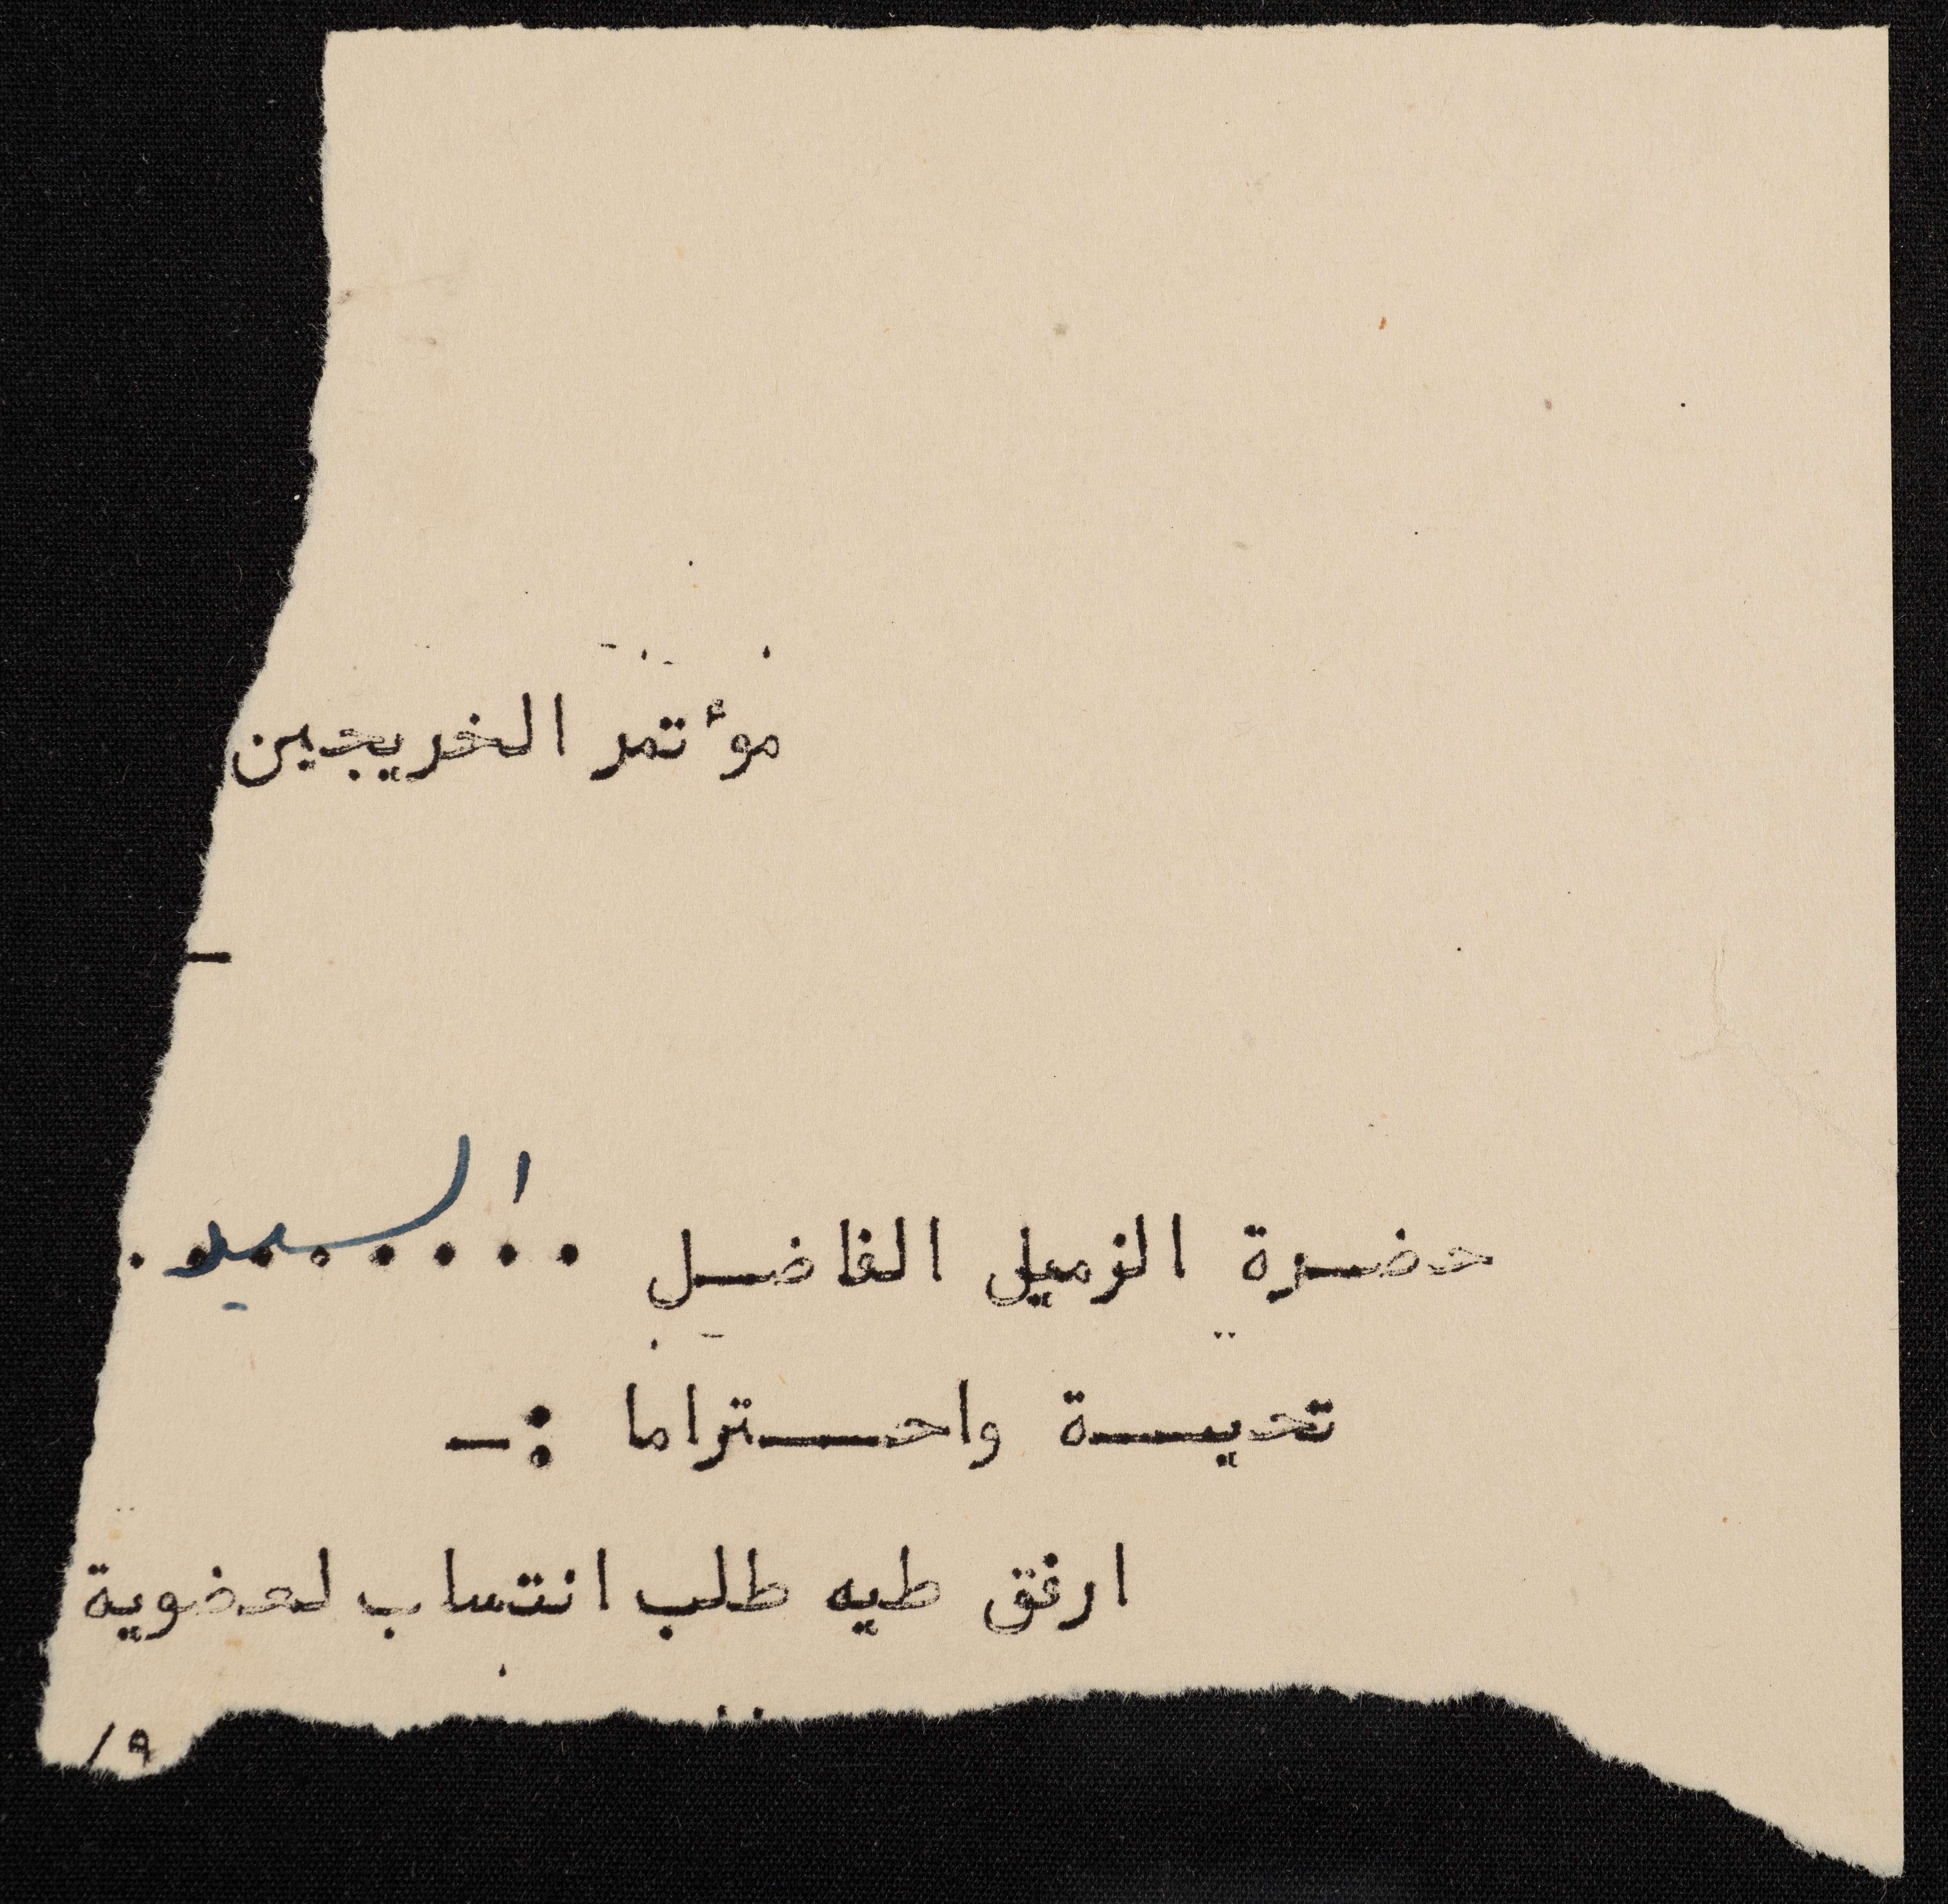 مؤتمر الخريجين
–
حضرة الزميل الفاضل ........ السيد
تحية واحتراما :–
ارفق طيه طلب انتساب لعضوية
٩/